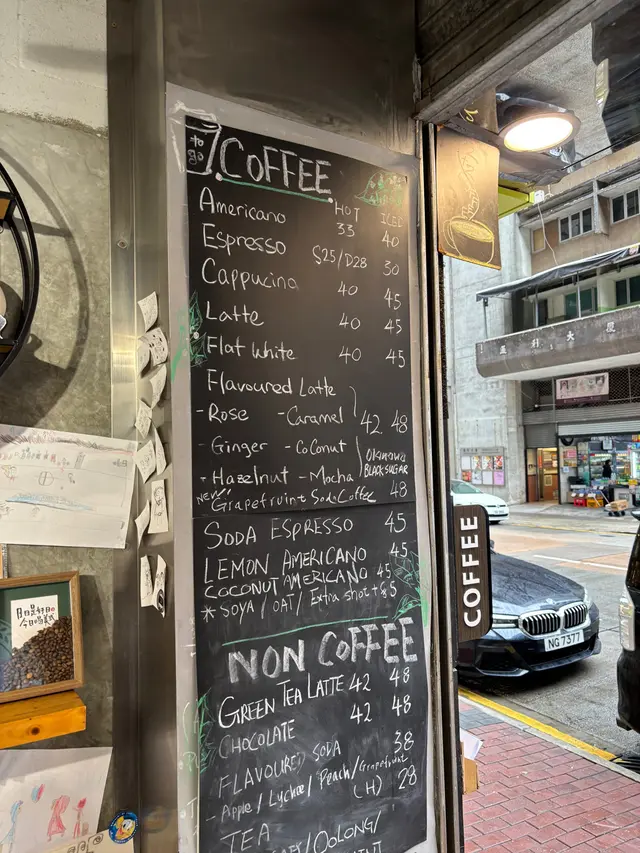 to
go
COFFEE
HOT ICED
Americano 33 40
Espresso S25/D28 30
Cappucino 40 45
Latte 40 45
Flat White 40 45
Flavoured Latte
- Rose - Caramel 42 48
- Ginger - Coconut OKINAWA
- Hazelnut - Mocha BLACK SUGAR
NEW Grapefruint Soda Coffee 48
SODA ESPRESSO 45
LEMON AMERICANO 45
COCONUT AMERICANO 45
* SOYA / OAT / Extra shot + $5
NON COFFEE
GREEN TEA LATTE 42 48
CHOCOLATE 42 48
FLAVOURED SODA 38
- Apple / Lychee / Peach / Grapefruit
TEA (H) 28
OOLONG /
COFFEE
NG 7377
日日是好日